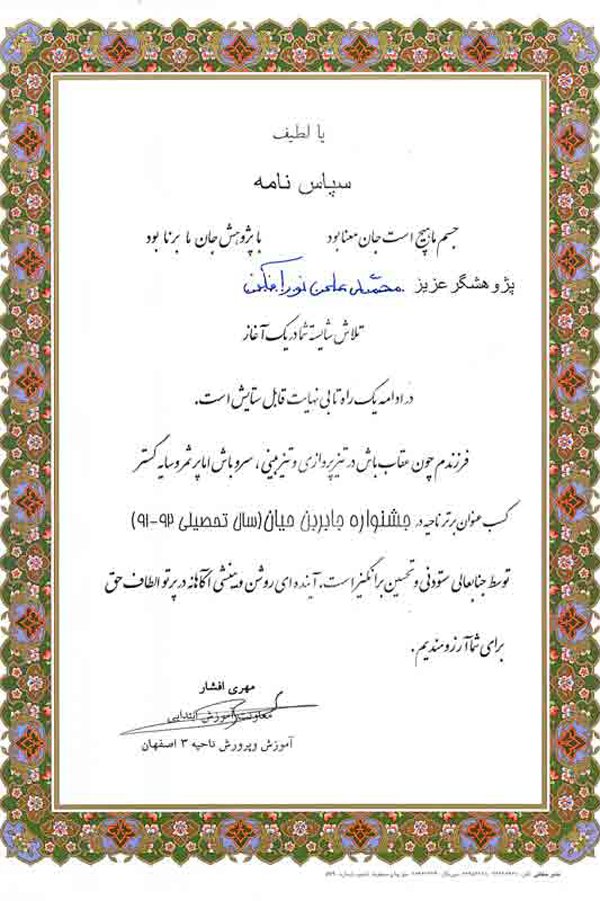 یا لطیف
سپاس نامه
جسم ما هیچ است جان معنا بود با پژوهش جان ما برنا بود
پژوهشگر عزیز محمدعلی نورافکن
تلاش شایسته شما در یک آغاز
در ادامه یک راه تا بی نهایت قابل ستایش است.
فرزندم چون عقاب باش در تیزپروازی و تیزبینی، سرو باش اما پر ثمر و سایه گستر
کسب عنوان برتر ناحیه در جشنواره جابربن حیان(سال تحصیلی ۹۲-۹۱)
توسط جنابعالی ستودنی و تحسین برانگیز است. آینده ای روشن و بینشی آگاهانه در پرتو الطاف حق
برای شما آرزومندیم.
مهری افشار
معاونت آموزش ابتدایی
آموزش و پرورش ناحیه ۳ اصفهان